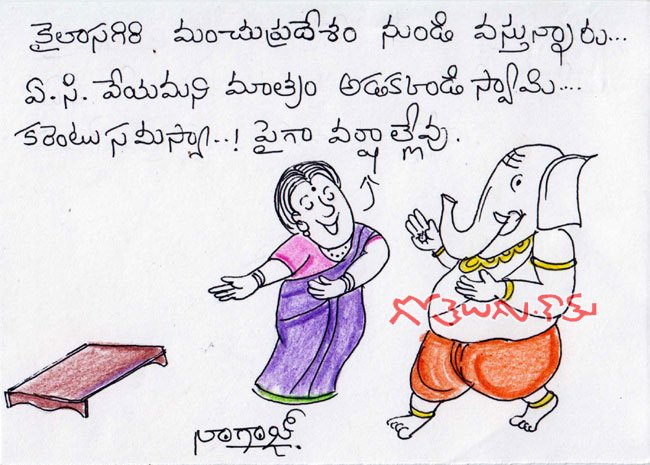 కైలాసగిరి, మంచుప్రదేశం నుండి వస్తున్నారు...
ఏ.సి. వేయమని మాత్రం అడకకండి స్వామి....
కరెంటు సమస్యా..! పైగా వర్షాల్లేవు.
గోతెలుగు.కామ్
నాగ్రాజ్